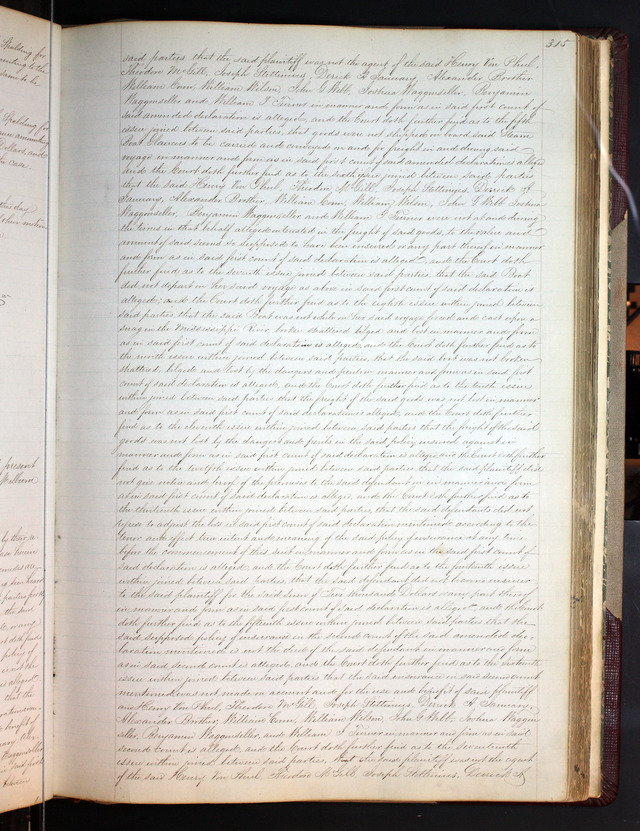 315
said parties that the said plaintiff was not the agent of the said Henry Von Phul,
Theodore McGill, Joseph Stettinius, Derick A January, Alexander Brother
William Conn, William Wilson, John G Webb, Joshua Waggenseller, Benjamin
Waggenseller and William T Turner in manner and form as in said first count of
said amended declaration is alleged, and the Court doth further find as to the fifth
issue joined between said parties, that goods were not shipped on board said Steam
Boat Clarissa to be carried and conveyed on and for freight in and during said
voyage in manner and form as in said first count of said amended declaration is alleged
and the Court doth further find as to the sixth issue joined between said parties
that the said Henry Von Phul, Theodore McGill, Joseph Stettinius, Derrick A
January, Alexander Brother, William Conn, William Wilson, John G Webb Joshua
Waggenseller, Benjamin Waggenseller and William T Turner were not at and during
the times in that behalf alleged interested in the freight of said goods, to the value and
amount of said sums so supposed to have been insured or any part thereof in manner
and form as in said first count of said declaration is alleged, and the Court doth
further find as to the seventh issue joined between said parties, that the said Boat
did not depart on her said voyage as above in said first count of said declaration is
alleged; and the Court doth further find as to the eighth issue within joined between
said parties, that the said Boat was not while on her said voyage forced and cast upon a
snag in the Mississippi River, broken shattered bilged and lost in manner and form
as in said first count of said declaration is alleged, and the Court doth further find as to
the ninth issue within joined between said parties, that the said boat was not broken
shattered, bilged and lost by the dangers and perils in manner and form as in said first
count of said declaration is alleged, and the Court doth further find as to the tenth issue
within joined between said parties that the freight of the said goods was not lost in manner
and form as in said first count of said declaration is alleged, and the Court doth further
find as to the eleventh issue within joined between said parties that the freight of the said
goods was not lost by the dangers and perils in the said policy insured against in
manner and form as in said first count of said declaration is alleged, and the Court doth further
find as to the twelfth issue within joined between said parties that the said plaintiff did
not give notice and proof of the premises to the said defendant in manner and form
as in said first count of said declaration is alleged, and the Court doth further find as to
the thirteenth issue within joined between said parties, that the said defendants did not
refuse to adjust the loss in said first count of said declaration mentioned according to the
tenor and effect true intent and meaning of the said policy of insurance at any time
before the commencement of this suit in manner and form as in the said first count of
said declaration is alleged, and the Court doth further find as to the fourteenth issue
within joined between said parties, that the said defendant did not become insurer
to the said plaintiff for the said sum of Two thousand Dollars or any part thereof
in manner and form as in said first count of said declaration is alleged, and the Court
doth further find as to the fifteenth issue within joined between said parties that the
said supposed policy of insurance in the second count of the said amended dec-
laration mentioned is not the deed of the said defendant in manner and form
as in said second count is alleged, and the Court doth further find as to the sixteenth
issue within joined between said parties that the said insurance in said second count
mentioned was not made on account and for the use and benefit of said plaintiff
and Henry Von Phul, Theodore McGill, Joseph Stettinius, Derrick A January,
Alexander Brother, William Conn, William Wilson John G Webb, Joshua Waggen
seller, Benjamin Waggenseller, and William T Turner in manner and form as in said
second count is alleged, and the Court doth further find as to the seventeenth
issue within joined between said parties, that the said plaintiff was not the agent
of the said Henry Von Phul, Theodore McGill Joseph Stettinius, Derrick A